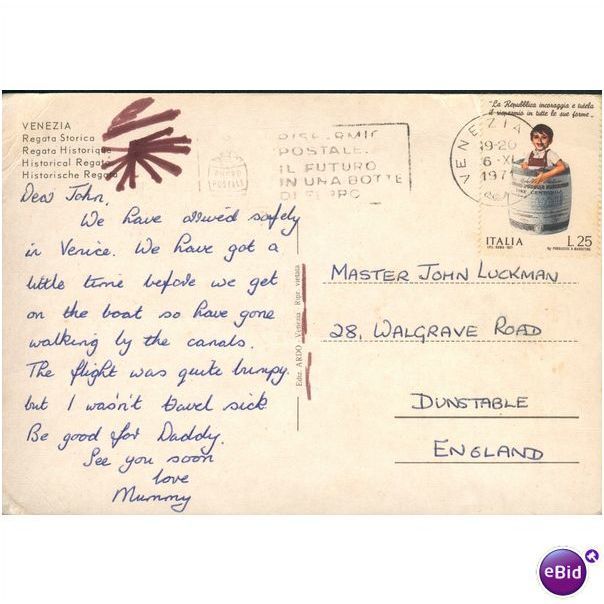 VENEZIA
Regata Storica
Regata Historique
Historical Regata
Historische Regata
Dear John,
We have arrived safely
in Venice. We have got a
little time before we get
on the boat so have gone
walking by the canals.
The flight was quite bumpy
but I wasn't travel sick.
Be good for Daddy.
See you soon
love
Mummy
Ediz. ARDO - Venezia Ripr. vietata
RISPARMIO
POSTALE
IL FUTURO
IN UNA BOTTE
DI FERRO
VENEZIA
19-20
6-XI
1971
"La Repubblica incoraggia e tutela
il risparmio in tutte le sue forme"
ITALIA
L.25
MASTER JOHN LUCKMAN
28, WALGRAVE ROAD
DUNSTABLE
ENGLAND
eBid